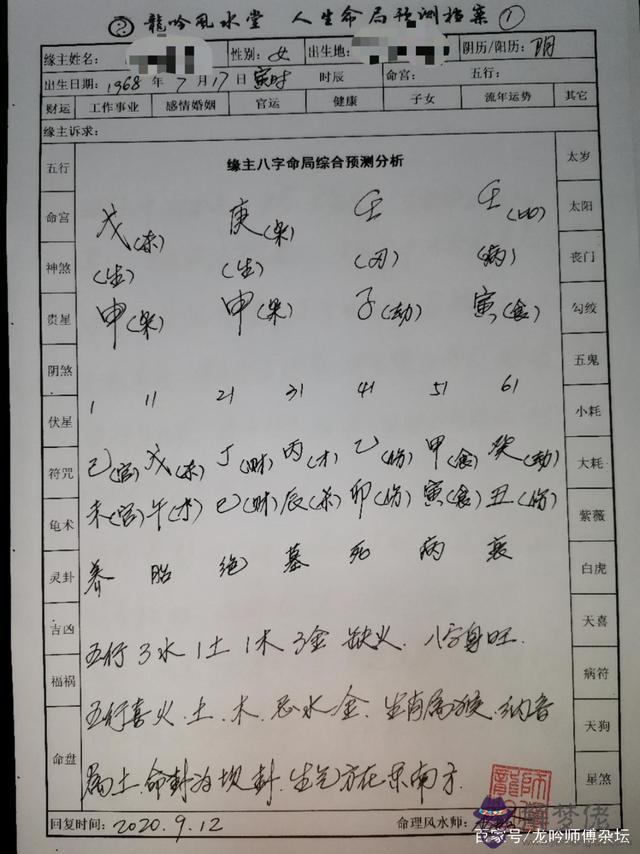 ② 龍吟风水堂 人生命局预测档案①
缘主姓名: 性别: 女 出生地: 阴历/阳历: 阴
出生日期: 1968年7月17日寅时 时辰 命宫: 五行:
财运 工作事业 感情婚姻 官运 健康 子女 流年运势 其它
缘主诉求:
五行
命宫
神煞
贵星
阴煞
伏星
符咒
龟术
灵卦
吉凶
福祸
命盘
缘主八字命局综合预测分析
戊(杀) 庚(枭) 壬 壬(比)
(生) (生) (刃) (病)
申(枭) 申(枭) 子(劫) 寅(食)
1 11 21 31 41 51 61
己(官) 戊(杀) 丁(财) 丙(才) 乙(伤) 甲(食) 癸(劫)
未(官) 午(才) 巳(财) 辰(杀) 卯(伤) 寅(食) 丑(伤)
养 胎 绝 墓 死 病 衰
五行3水1土1木3金缺火. 八字身旺.
五行喜火.土.木.忌水金.生肖属猴.纳音
属土.命卦为坎卦.生气方在东南方.
太岁
太阳
丧门
勾绞
五鬼
小耗
大耗
紫薇
白虎
天喜
病符
天狗
星煞
回复时间: 2020.9.12 命理风水师:
解梦佬
百家号/龙吟师傅杂坛